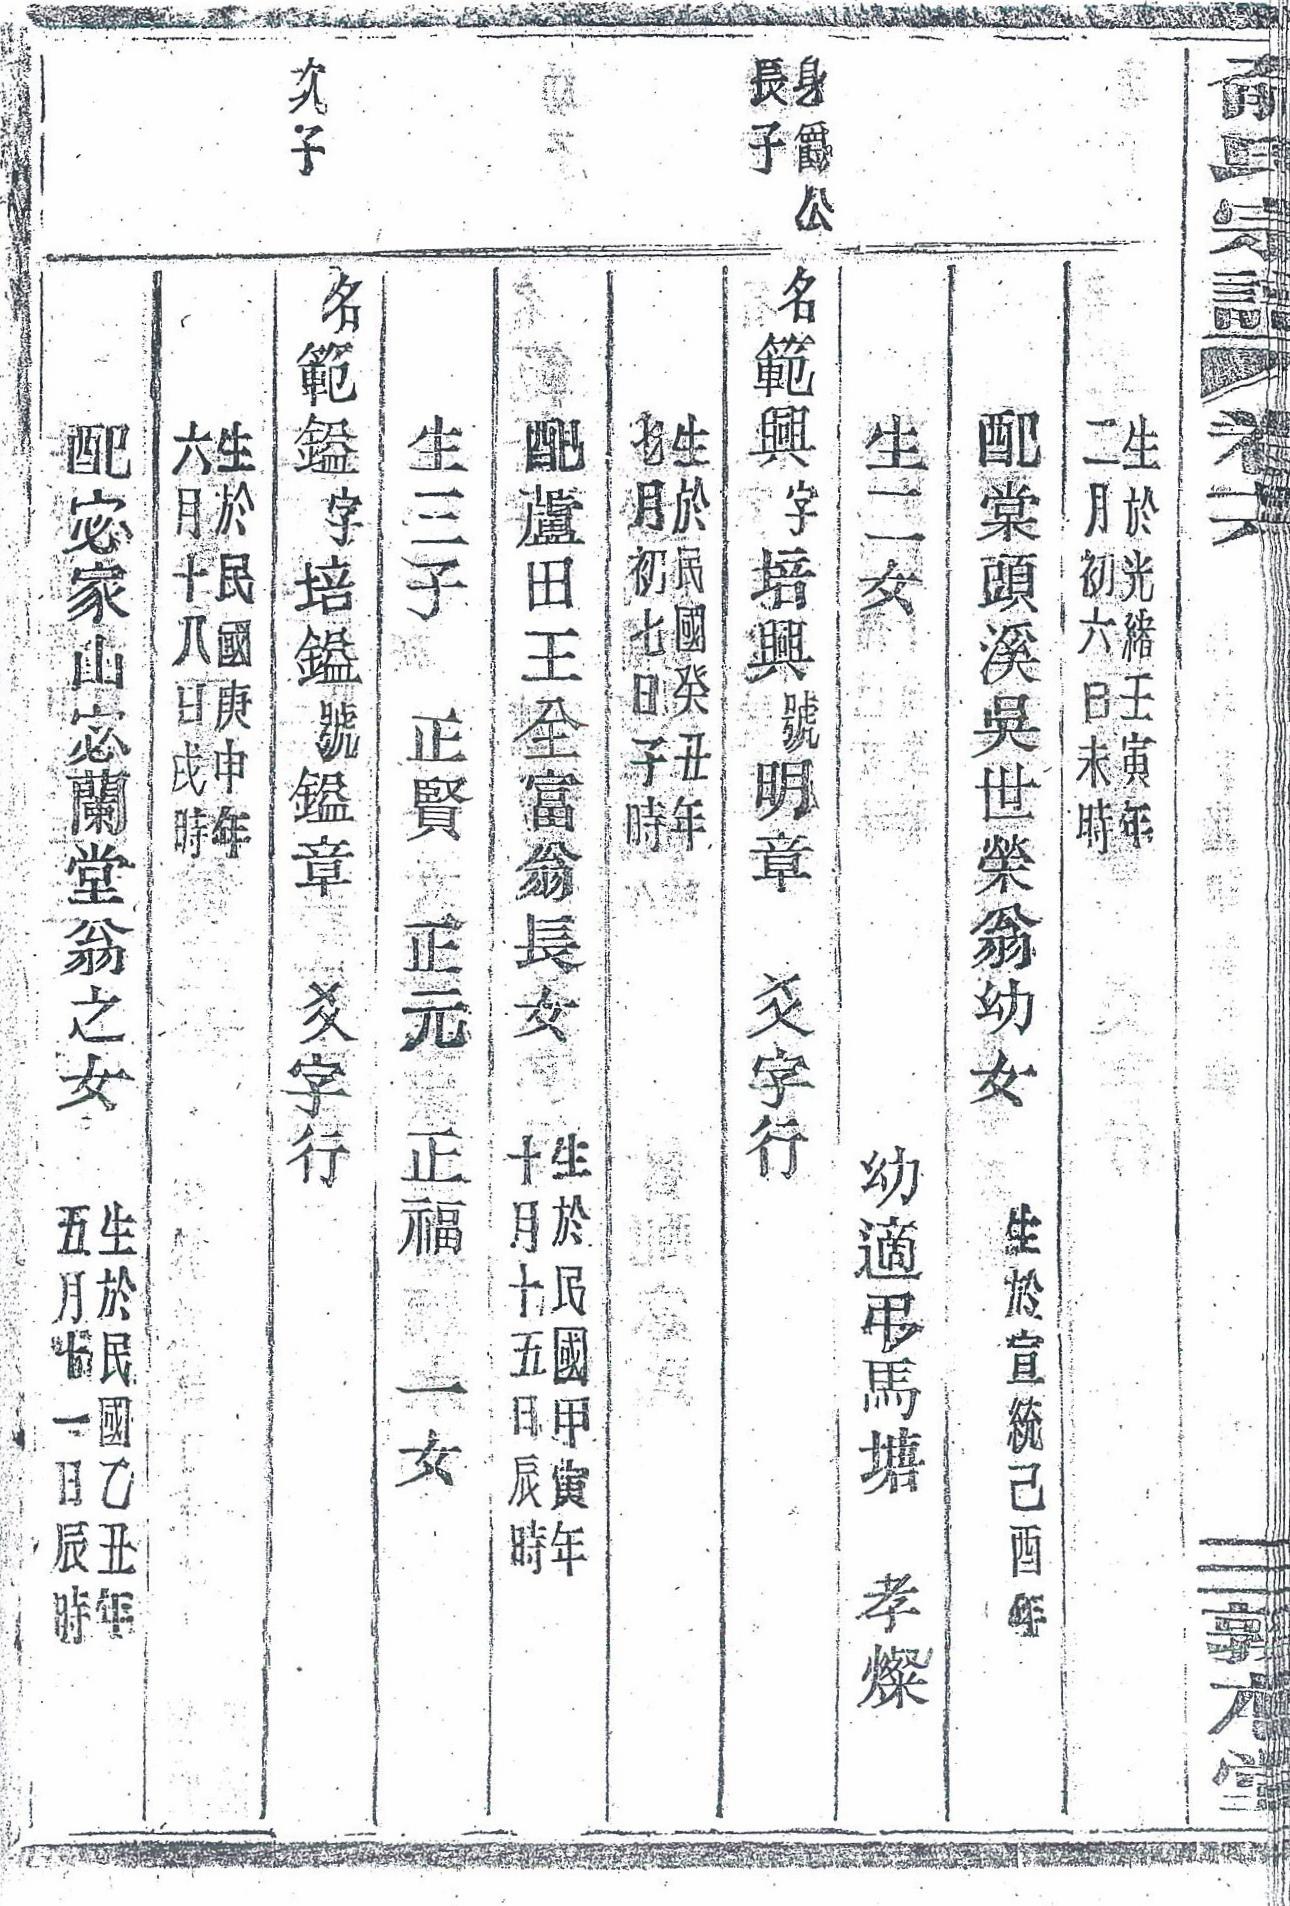 生於光緒壬寅年
二月初六日未時
配棠頭溪吳世榮翁幼女 生於宣統己酉年
生二女 幼適弔馬塘 孝燦
身爵公
長子
名範興字培興號明章 爻字行
生於民國癸丑年
七月初七日子時
配蘆田王全富翁長女 生於民國甲寅年
十月十五日辰時
生三子 正賢 正元 正福 一女
次子
名範鎰字培鎰號鎰章 爻字行
生於民國庚申年
六月十八日戌時
配宓家山宓蘭堂翁之女 生於民國乙丑年
五月十一日辰時